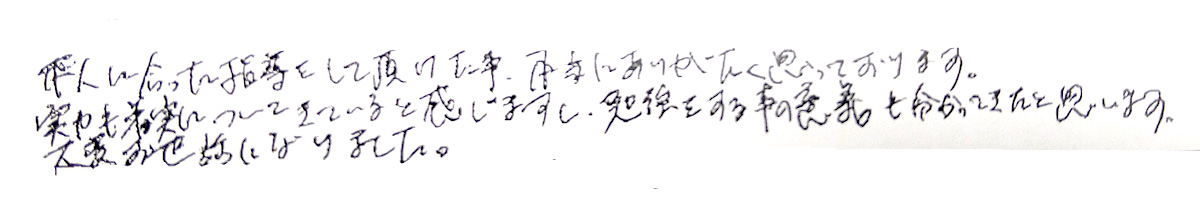 個人に合った指導をして頂けた事、本当にありがたく思っております。
実力も着実についてきていると感じますし、勉強をする事の意義も分かってきたと思います。
大変お世話になりました。